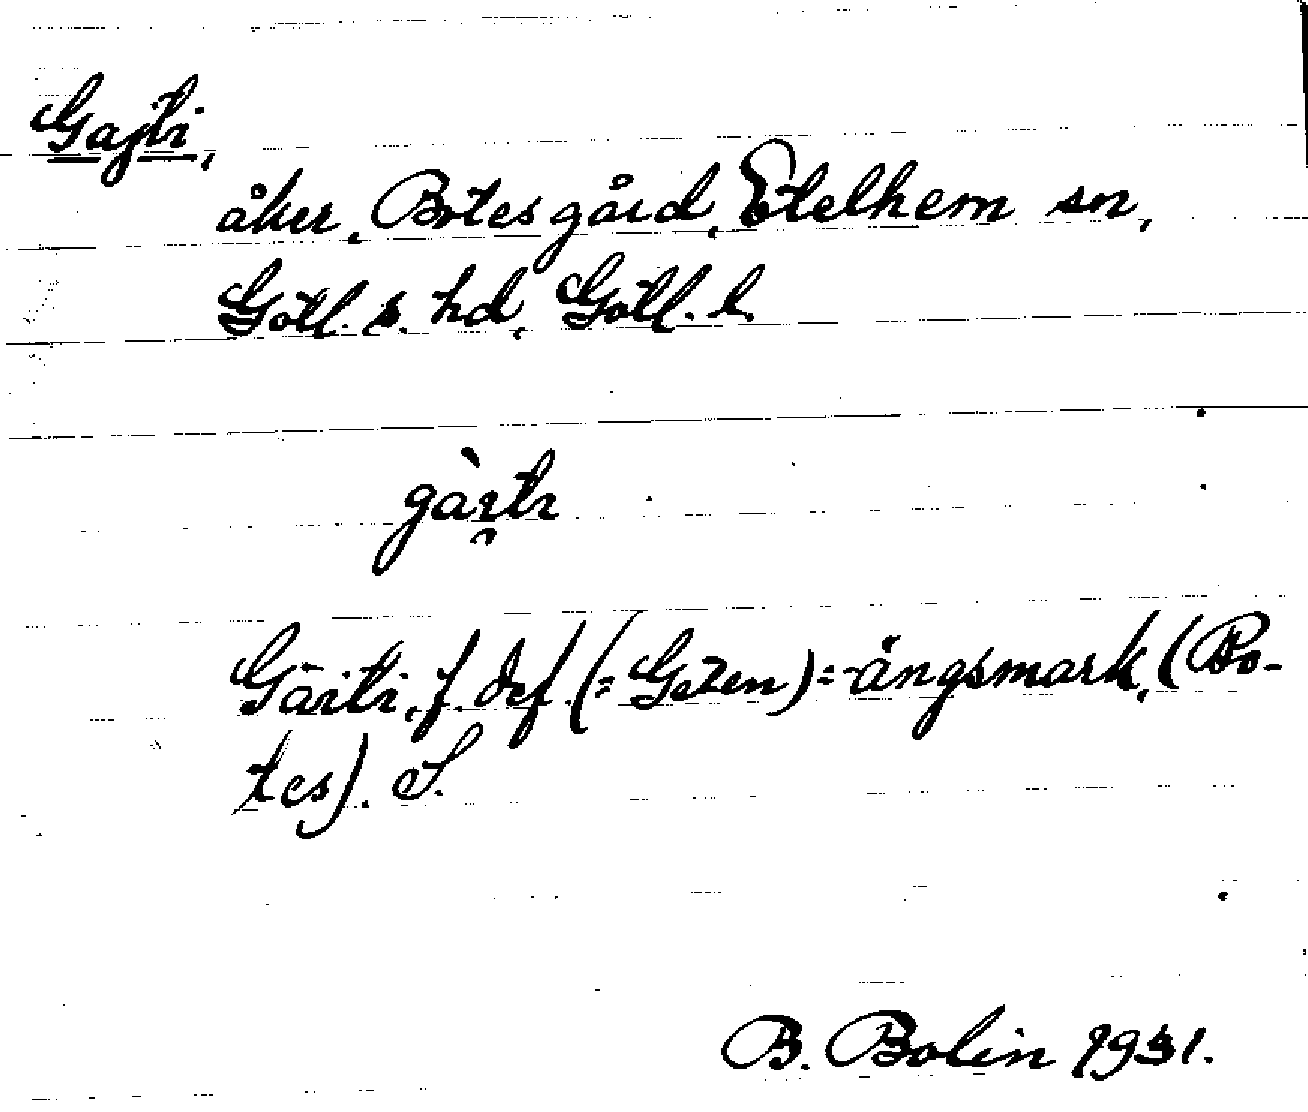 Gajti,
åker, Botes gård, Etelhem sn,
Gotl. s. hd, Gotl. l.
Gäiti, f. def. (= Geten) = ängsmark, (Bo-
tes). S.
B. Bolin 1931.